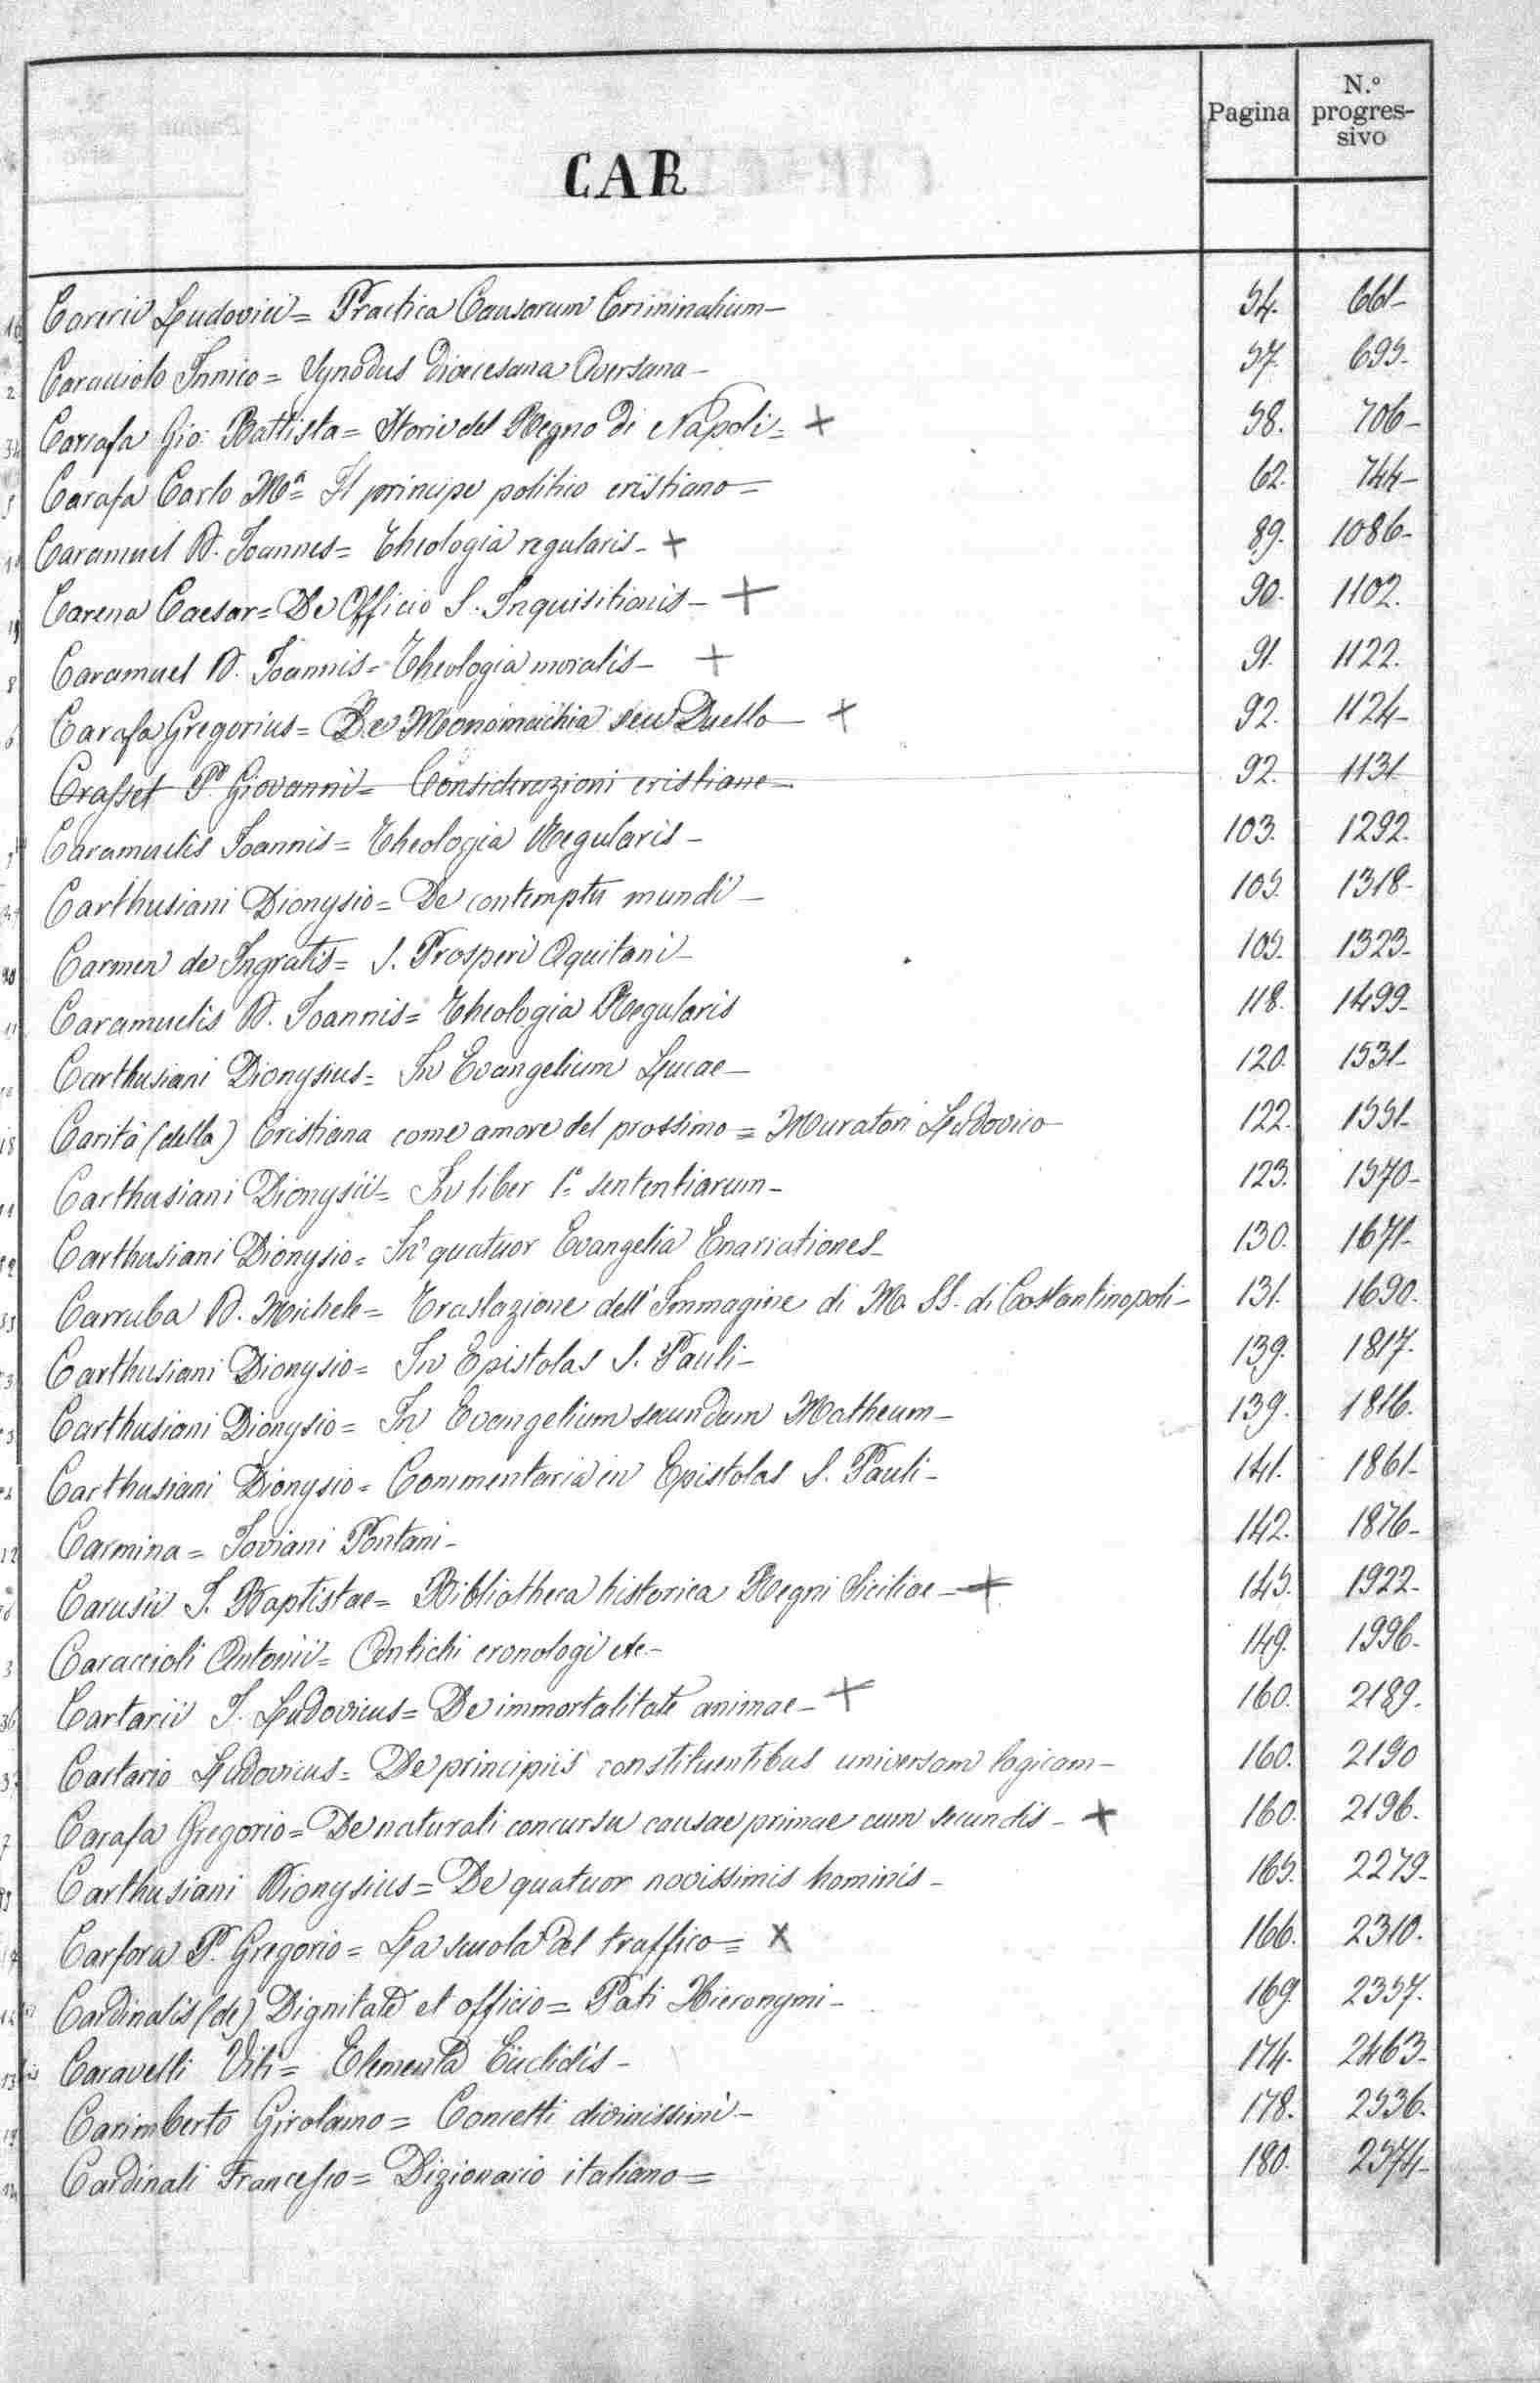 Pagina N.º progres-sivo
CAR
Carerii Ludovici = Practica Causarum Criminalium - 54. 661-
Caracciolo Innico = Synodus Diocesana Aversana - 57. 695-
Carrafa Gio: Battista = Storie del Regno di Napoli = + 58. 706-
Carafa Carlo Mª = Il principe politico cristiano = 62. 744-
Caramuel D. Joannes = Theologia regularis - + 89. 1086-
Carena Caesar = De Officio S. Inquisitionis - + 90. 1102.
Caramuel D. Joannis = Theologia moralis - + 91. 1122.
Carafa Gregorius = De Monomachia seu Duello - + 92. 1124-
Crasset P. Giovanni = Considerazioni cristiane - 92. 1131
Caramuelis Joannis = Theologia Regularis - 103. 1292.
Carthusiani Dionysio = De contemptu mundi - 105. 1318-
Carmen de Ingratis = S. Prosperi Aquitani - 105. 1323-
Caramuelis D. Joannis = Theologia Regularis 118. 1499-
Carthusiani Dionysius = In Evangelium Lucae - 120. 1531-
Carità (della) Cristiana come amore del prossimo = Muratori Ludovico 122. 1551-
Carthusiani Dionysii = In liber 1º sententiarum - 123. 1570-
Carthusiani Dionysio = In quatuor Evangelia Enarrationes - 130. 1671-
Carruba D. Michele = Traslazione dell' Immagine di M. SS. di Costantinopoli - 131. 1690.
Carthusiani Dionysio = In Epistolas S. Pauli - 139. 1817.
Carthusiani Dionysio = In Evangelium secundum Matheum - 139. 1816.
Carthusiani Dionysio = Commentaria in Epistolas S. Pauli - 141. 1861-
Carmina = Joviani Pontani - 142. 1876-
Carusii J. Baptistae = Bibliotheca historica Regni Siciliae - + 145. 1922-
Caraccioli Antonii = Antichi cronologi etc. - 149. 1996-
Cartarii J. Ludovicus = De immortalitate animae - + 160. 2189.
Cartario Ludovicus = De principiis constituentibus universam logicam - 160. 2190
Carafa Gregorio = De naturali concursu causae primae cum secundis - + 160. 2196.
Carthusiani Dionysius = De quatuor novissimis hominis - 165. 2279-
Carfora P. Gregorio = La scuola del traffico = x 166. 2310.
Cardinalis (de) Dignitate et officio = Pati Hieronymi - 169. 2357.
Caravelli Viti = Elementa Euclidis - 174. 2463-
Carimberto Girolamo = Concetti divinissimi - 178. 2536.
Cardinali Francesco = Dizionario italiano = 180. 2574-